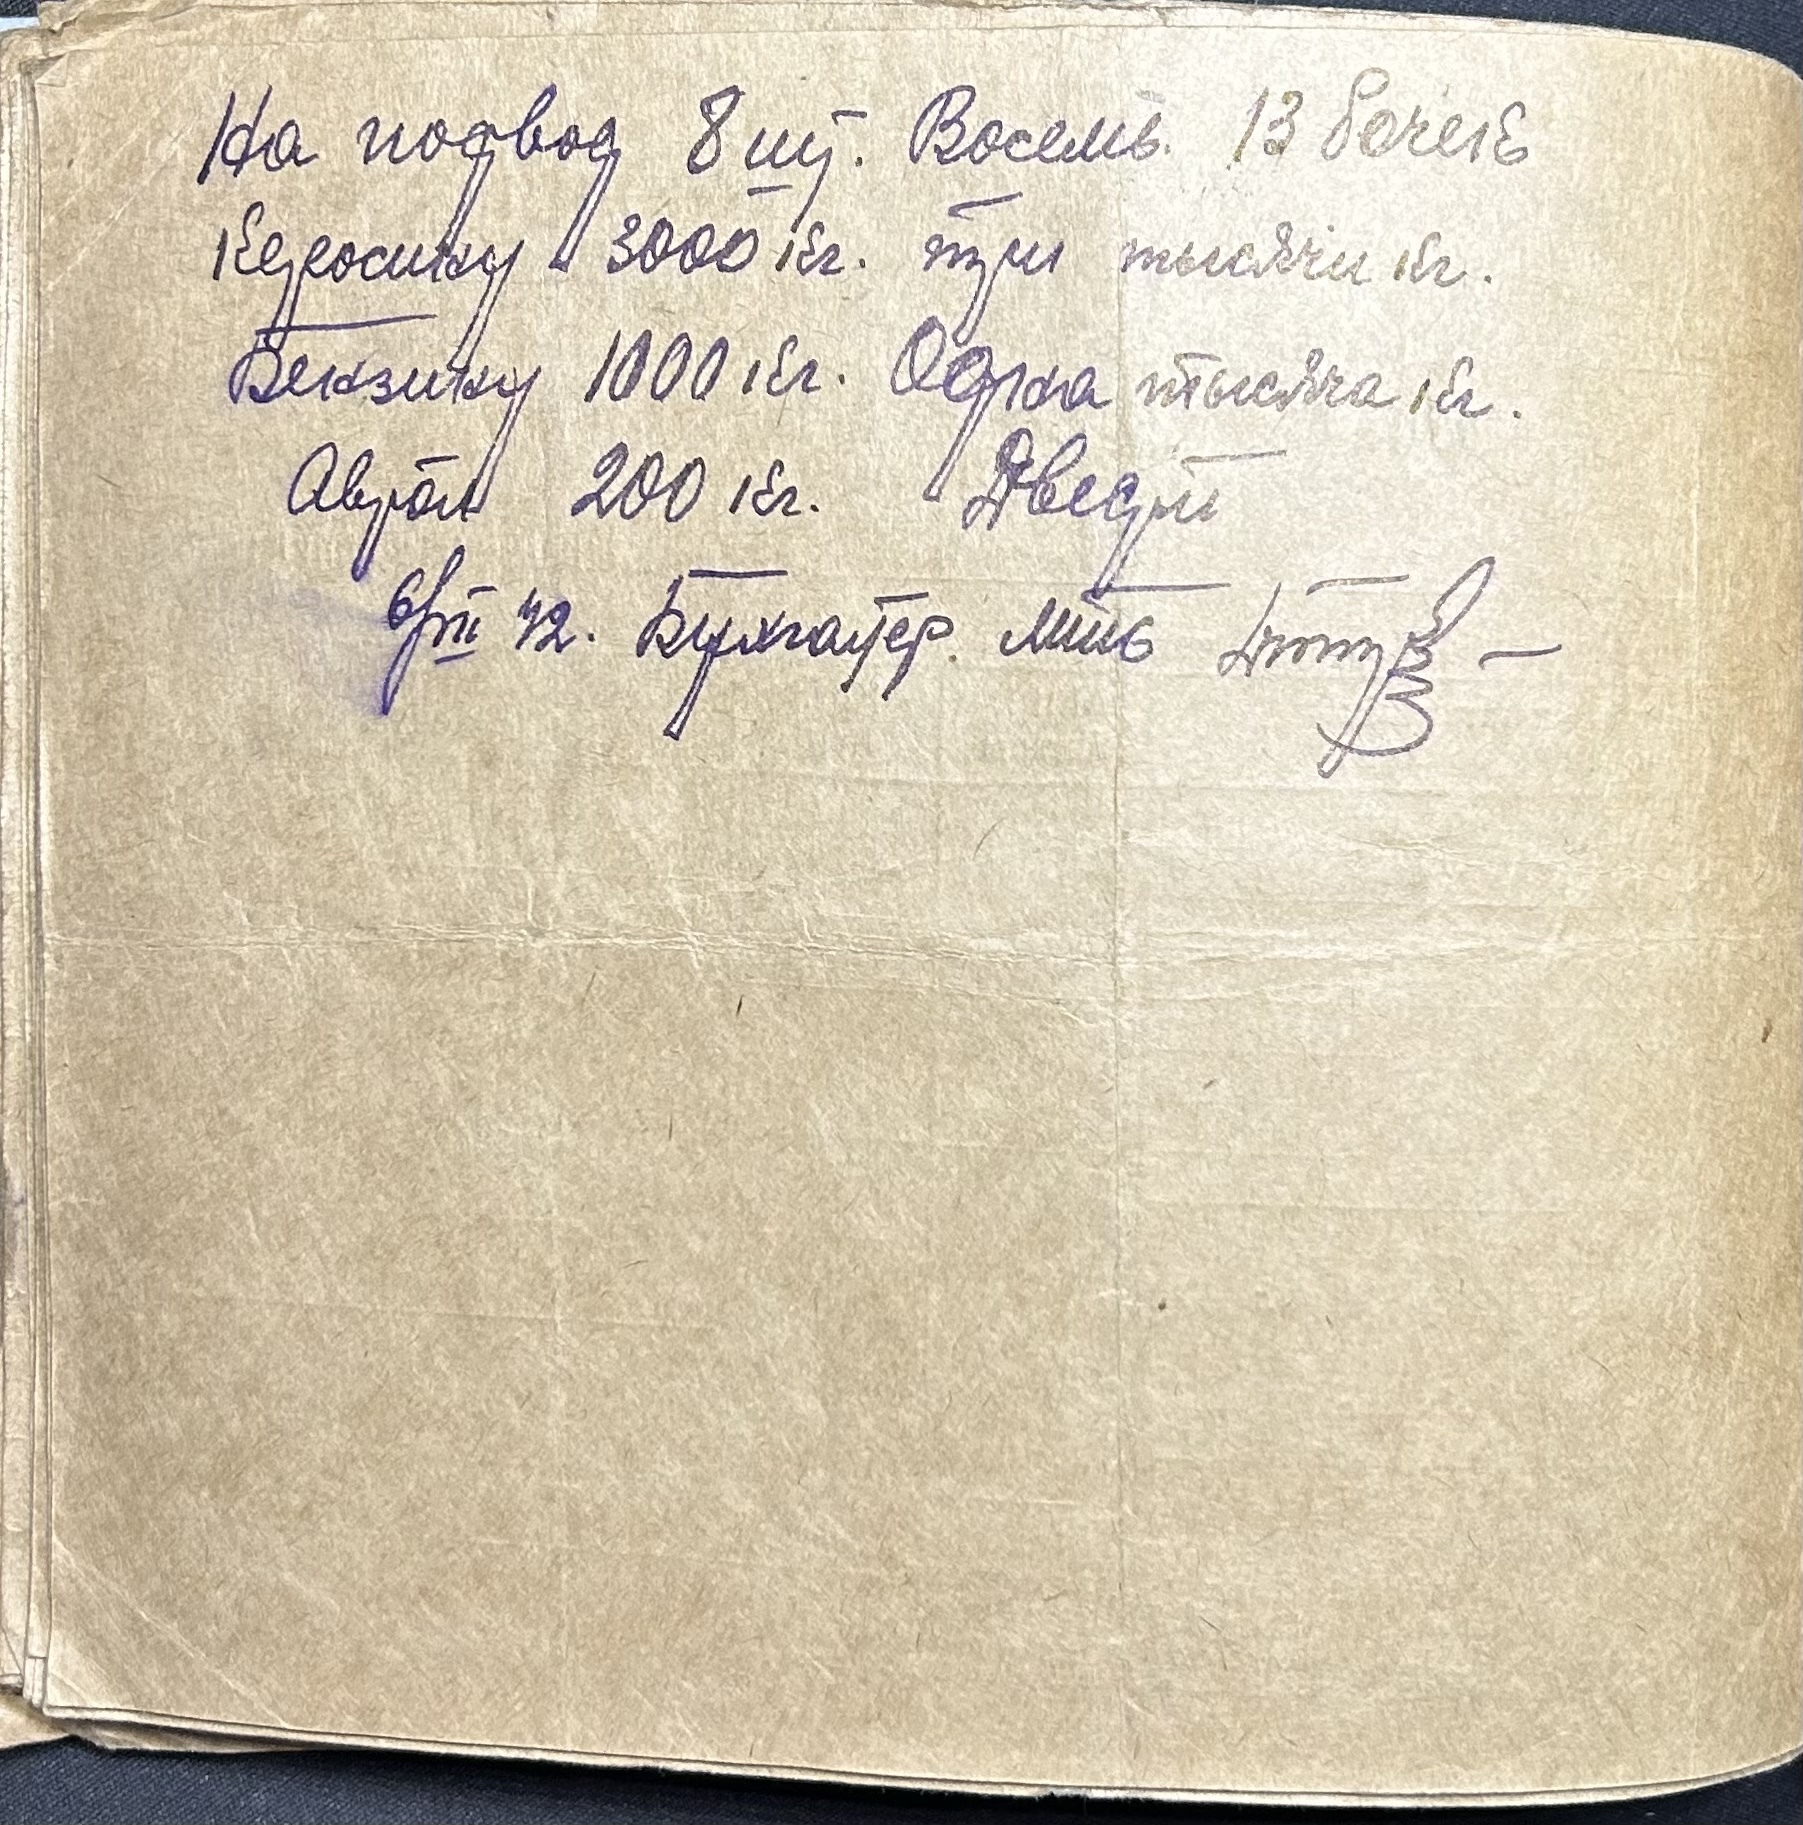 На подвод 8 шт. Восемь. 13 бочек
Керосину 3000 кг. три тысячи кг.
Бензину 1000 кг. Одна тысяча кг.
Автол 200 кг. Двести
6/III 42. Бухгалтер